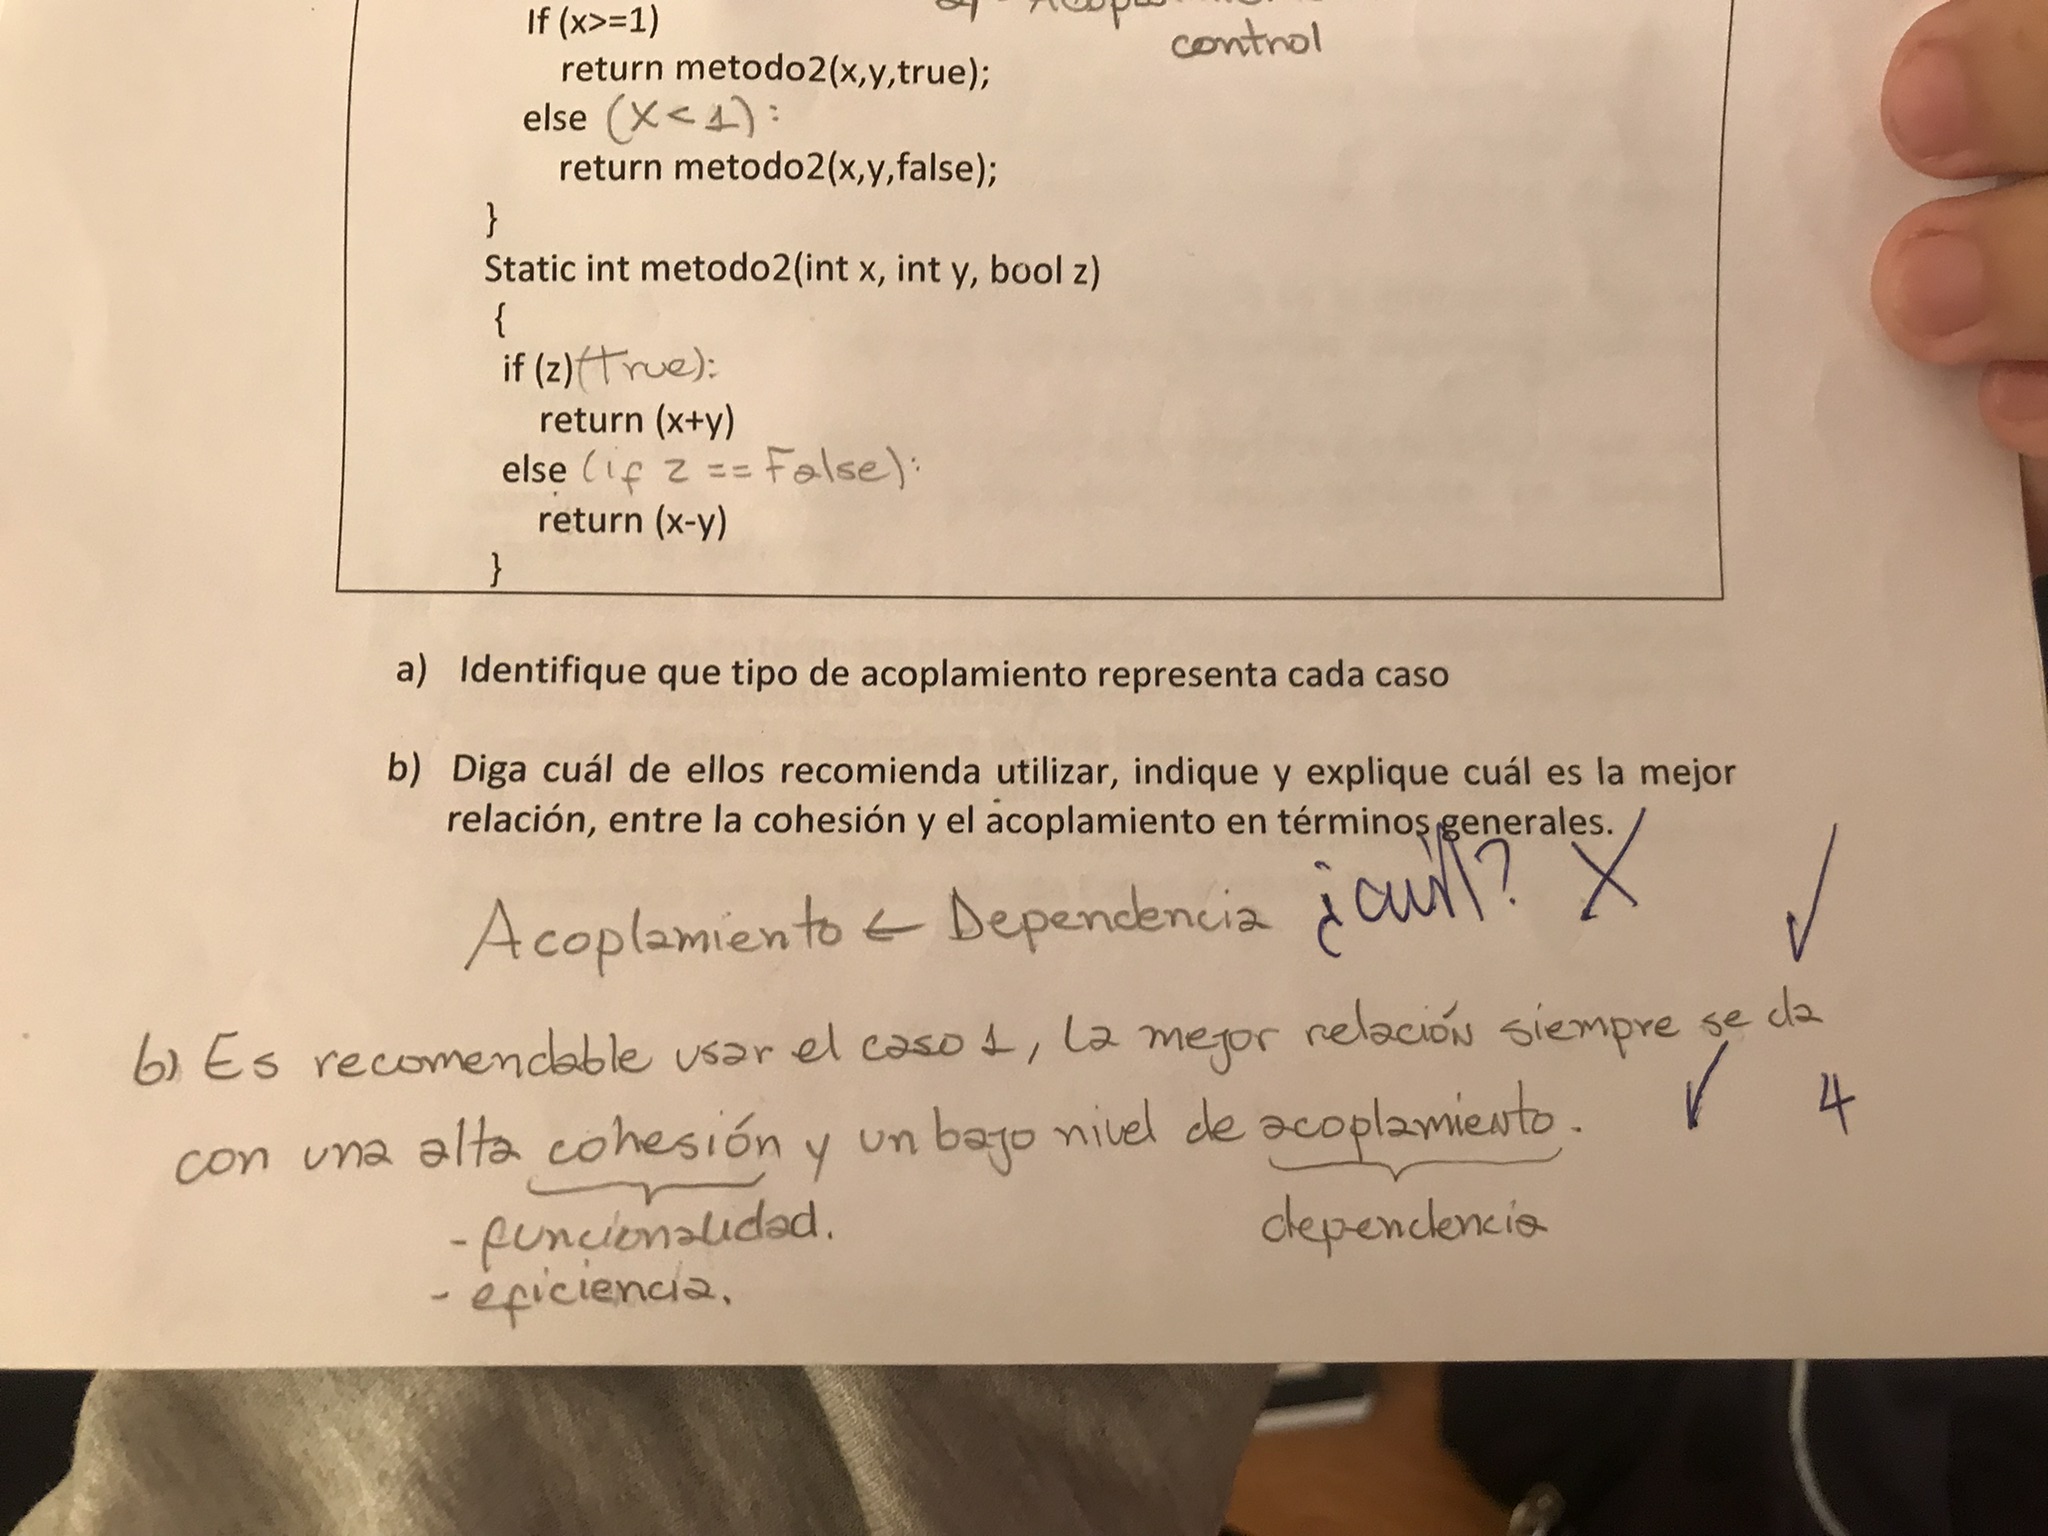 If (x>=1)
control
return metodo2(x,y,true);
else (x<1):
return metodo2(x,y,false);
}
Static int metodo2(int x, int y, bool z)
{
if (z)(True):
return (x+y)
else (if z == False):
return (x-y)
}
a) Identifique que tipo de acoplamiento representa cada caso
b) Diga cuál de ellos recomienda utilizar, indique y explique cuál es la mejor
relación, entre la cohesión y el acoplamiento en términos generales.
Acoplamiento ← Dependencia ¿cuál? X ✓
b) Es recomendable usar el caso 1, la mejor relación siempre se da
con una alta cohesión y un bajo nivel de acoplamiento. ✓ 4
- funcionalidad. dependencia
- eficiencia.